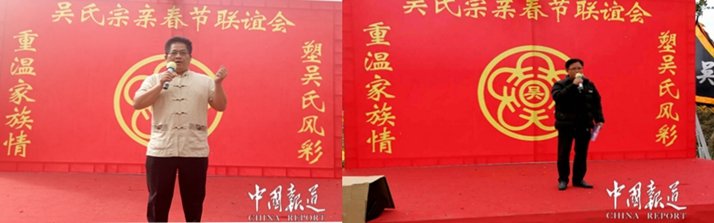 吴氏宗亲春节联谊会
重温家族情
塑吴氏风彩
中国报道
CHINA REPORT
吴氏宗亲春节联谊会
重温家族情
吴
塑吴氏风彩
吴
中国报道
CHINA REPORT